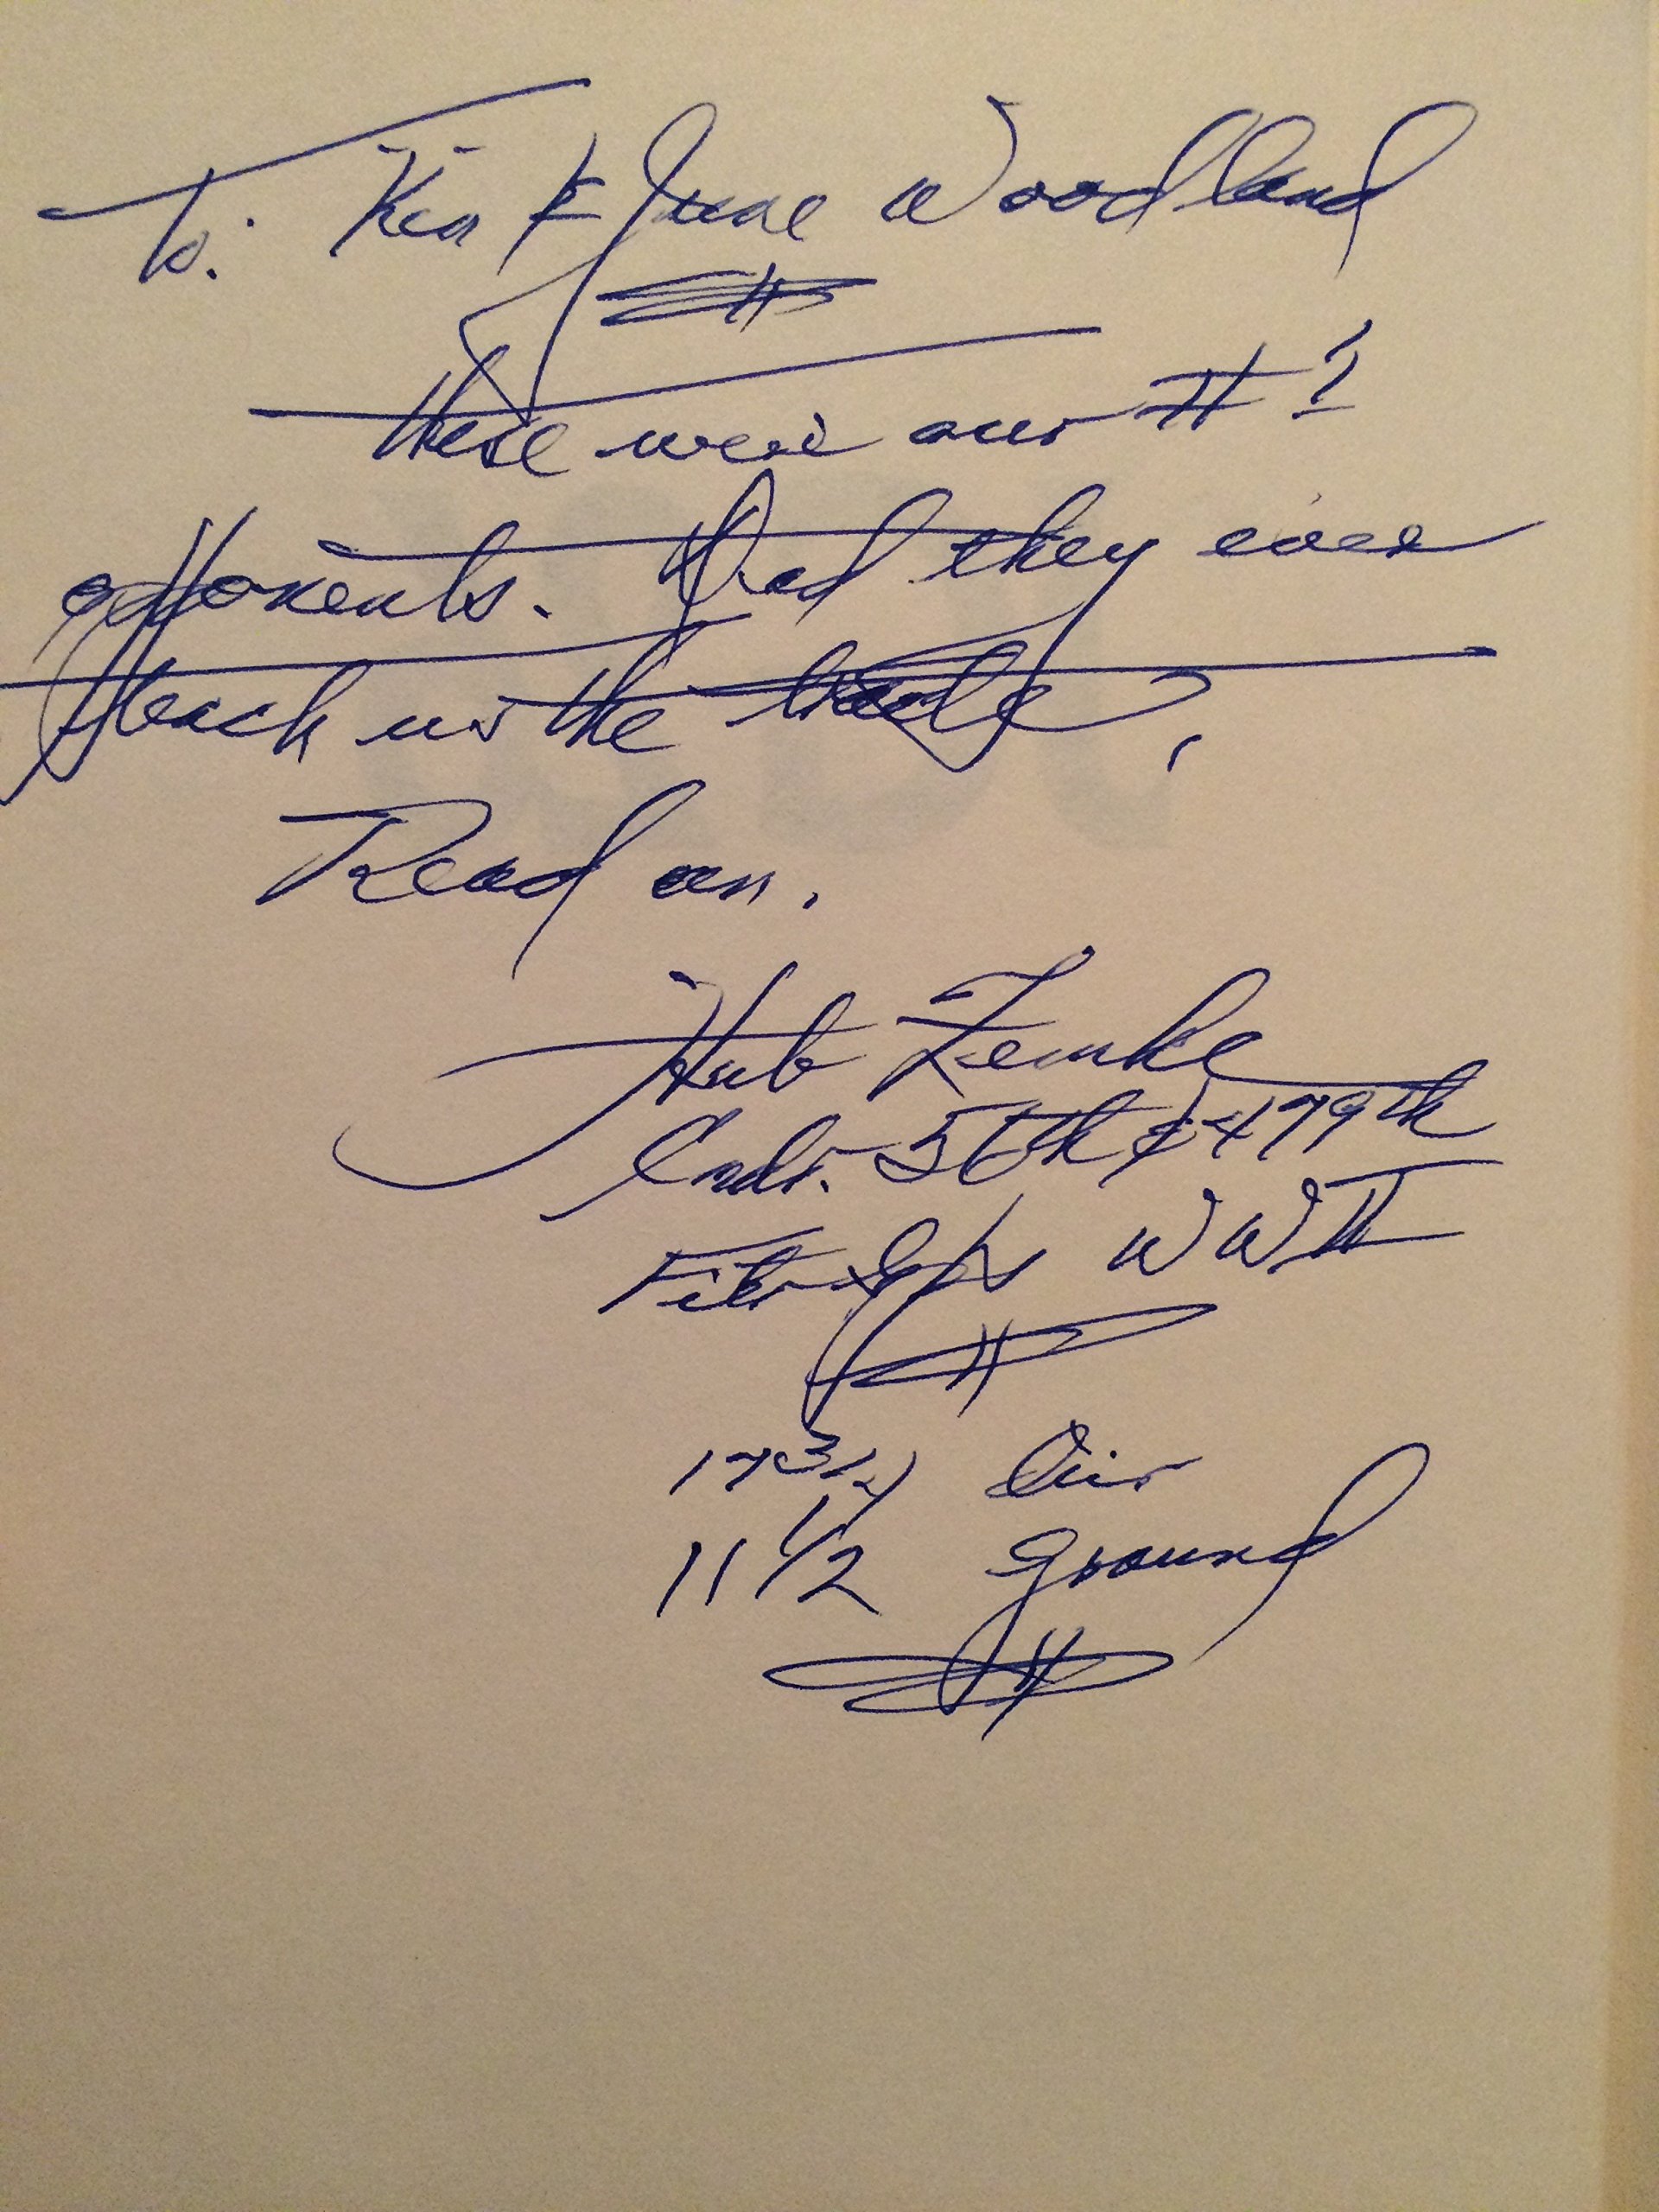 To: Ken & June Woodland
These were our #1
opponents. Did they ever
teach us the trade.
Read on.
Hub Zemke
Cmdr. 56th & 479th
Fitr Gps WWII
17 3/4 Air
11 1/2 Ground